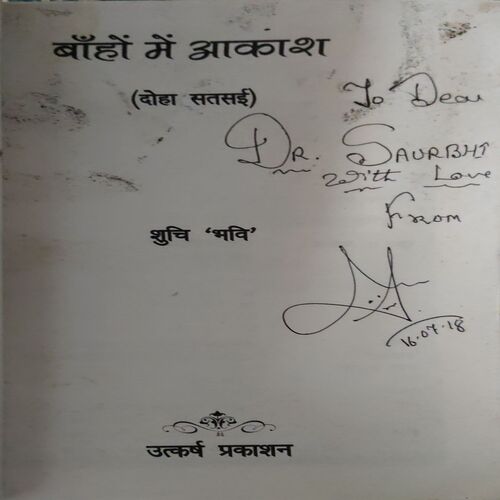 बाँहों में आकाश
(दोहा सतसई)
To Dear
DR. SAURBHI
With Love
From
शुचि 'भवि'
16.07.18
उत्कर्ष प्रकाशन